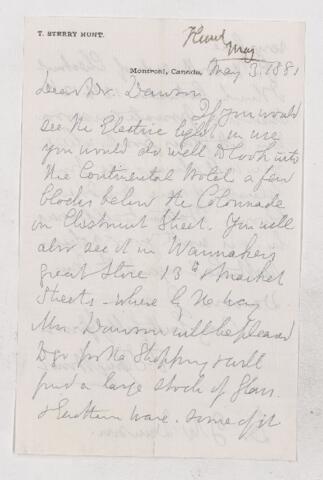 T. STERRY HUNT.
Hunt
May
Montreal, Canada, May 3, 1881
Dear Dr. Dawson
If you would
see the Electric light in use
you would do well to look into
the Continental Hotel a few
blocks below the Colonnade
on Chestnut Street. You will
also see it in Wanamakers
great Store 13th & Market
Streets - where by the way
Mrs. Dawson will be pleased
to go for the shopping & will
find a large stock of Glass
& Earthen ware. some of it